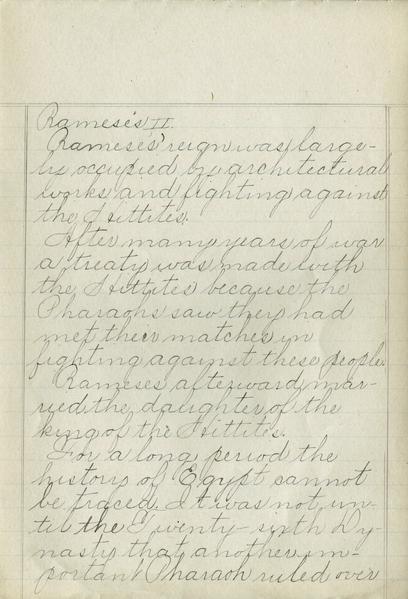 Rameses II.
Rameses' reign was large-
ly occupied by architectural
works and fighting against
the Hittites.
After many years of war
a treaty was made with
the Hittites because the
Pharaohs saw they had
met their matches in
fighting against these people.
Rameses afterward mar-
ried the daughter of the
king of the Hittites.
For a long period the
history of Egypt cannot
be traced. It was not un-
til the Twenty-sixth Dy-
nasty that another im-
portant Pharaoh ruled over